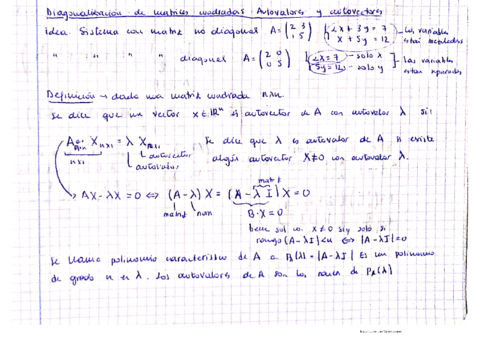 Diagonalización de matrices cuadradas: Autovalores y autovectores
Idea: Sistema con matriz no diagonal A = (2 3 / 1 5) { 2x + 3y = 7 / x + 5y = 12 → Las variables están mezcladas
" " " " diagonal A = (2 0 / 0 5) { 2x = 7 → solo x / 5y = 12 → solo y } Las variables están separadas
Definición → dada una matriz cuadrada nxn.
Se dice que un vector x ∈ ℝⁿ es autovector de A con autovalor λ si:
A nxn X nx1 = λ X nx1
autovector
autovalor
Se dice que λ es autovalor de A si existe
algún autovector X≠0 con autovalor λ.
→ AX - λX = 0 ⟺ (A - λ) X = (A - λ I) X = 0
matriz
matriz num
B · X = 0
tiene sol x ≠ 0 si y solo si
rango (A - λI) < n ⟺ |A - λI| = 0
Se llama polinomio característico de A a P_A(λ) = |A - λI| Es un polinomio
de grado n en λ. Los autovalores de A son las raíces de P_A(λ)